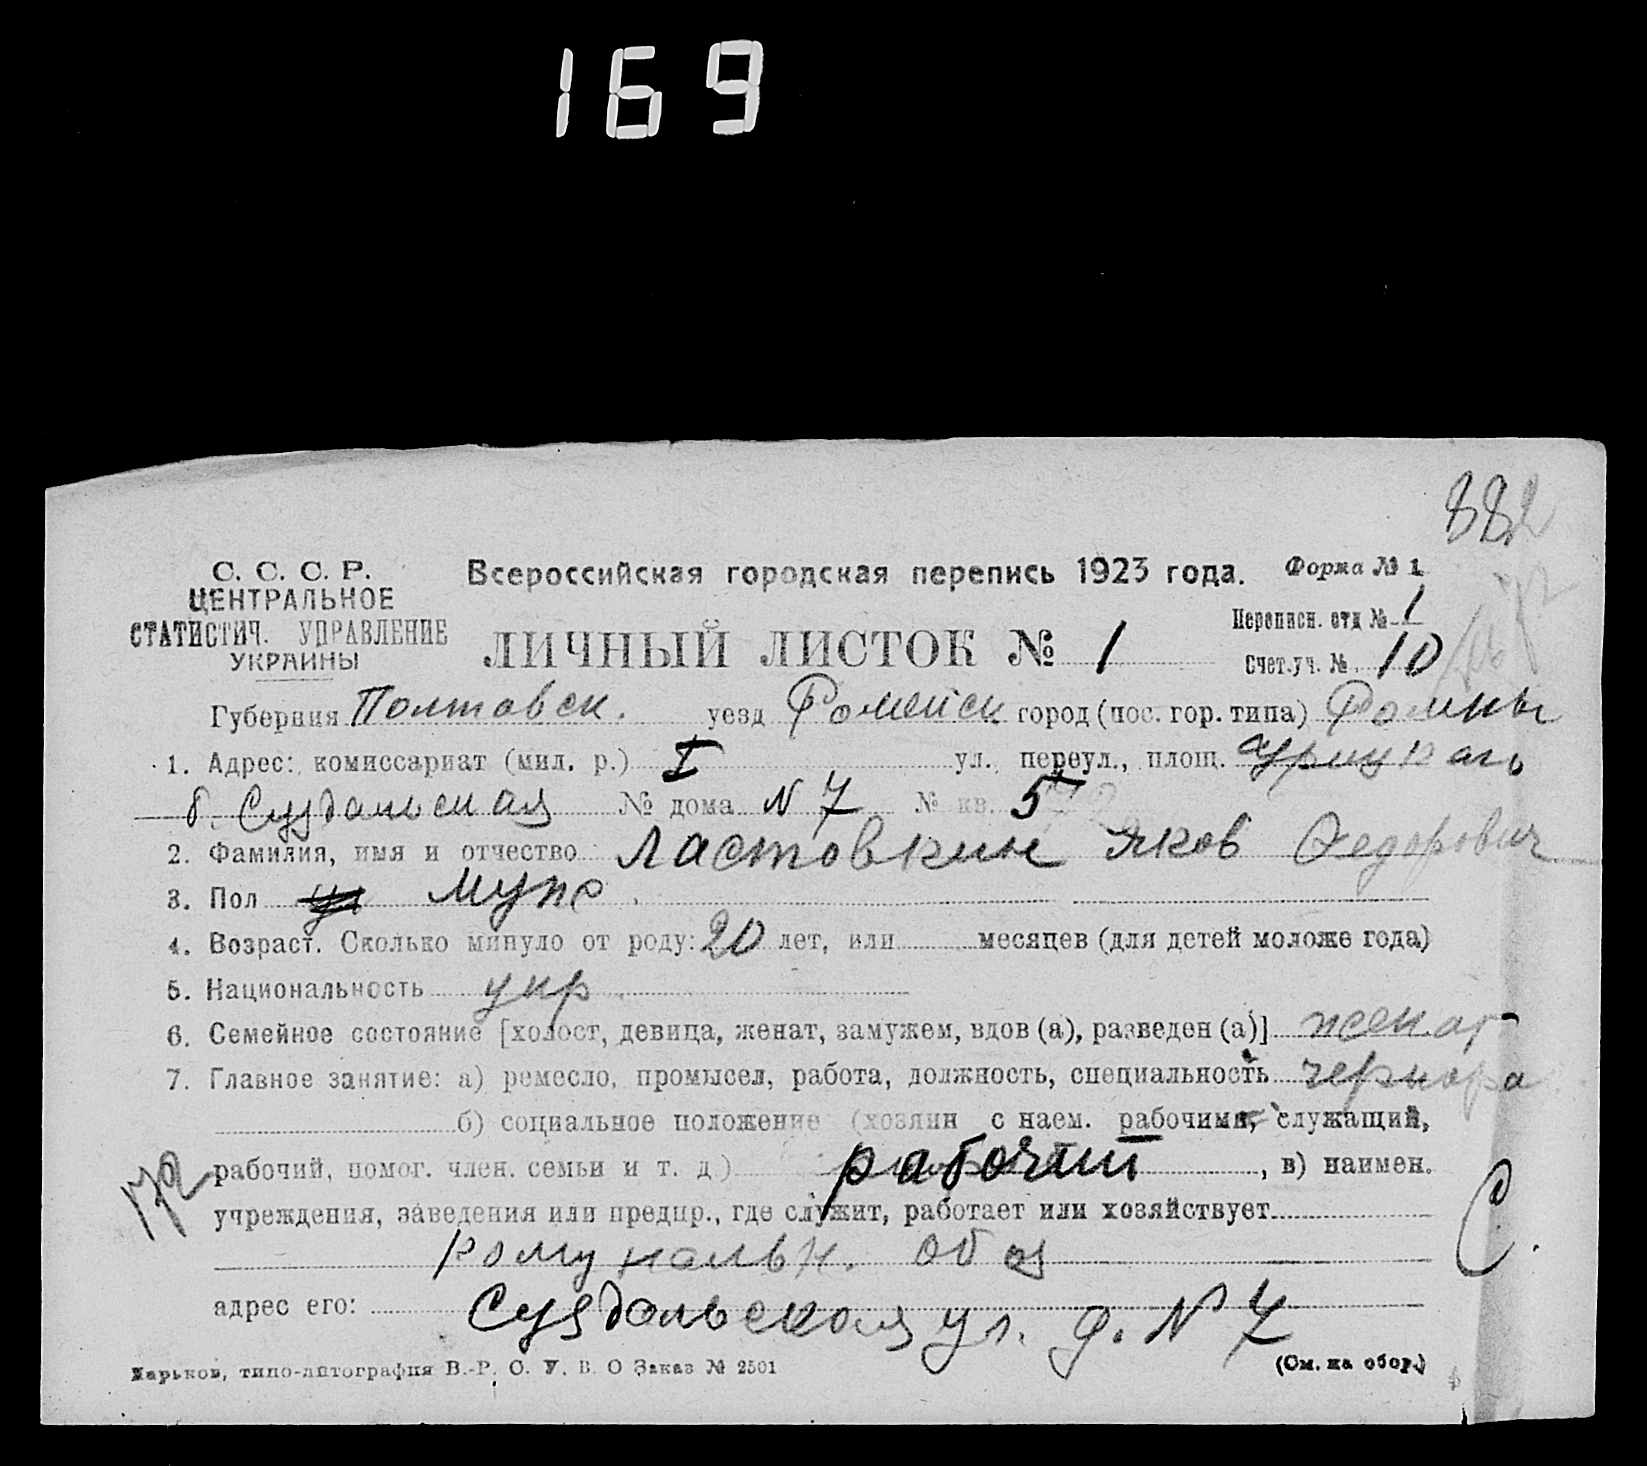 169
882
С. С. С. Р.
ЦЕНТРАЛЬНОЕ
СТАТИСТИЧ. УПРАВЛЕНИЕ
УКРАИНЫ
Всероссийская городская перепись 1923 года. Форма № 1
Переписн. отд № 1
ЛИЧНЫЙ ЛИСТОК № 1 Счет.уч. № 10
Губерния Полтавск. уезд Роменск город (пос. гор. типа) Ромны
1. Адрес: комиссариат (мил. р.) I ул. переул., площ. Урицкаго
б. Суздальская № дома N 7 № кв. 5
2. Фамилия, имя и отчество Ластовкин Яков Федорович
3. Пол Муж
4. Возраст. Сколько минуло от роду: 20 лет, или месяцев (для детей моложе года)
5. Национальность укр
6. Семейное состояние [холост, девица, женат, замужем, вдов (а), разведен (а)] женат
7. Главное занятие: а) ремесло, промысел, работа, должность, специальность чернора
б) социальное положение (хозяин с наем. рабочими, служащий,
рабочий, помог. член. семьи и т. д) рабочий , в) наимен.
учреждения, заведения или предпр., где служит, работает или хозяйствует
обоз
адрес его: Суздальская ул. д. N 7
Харьков, типо-литография В.-Р. О. У. В. О Заказ № 2501 (См. на обор.)